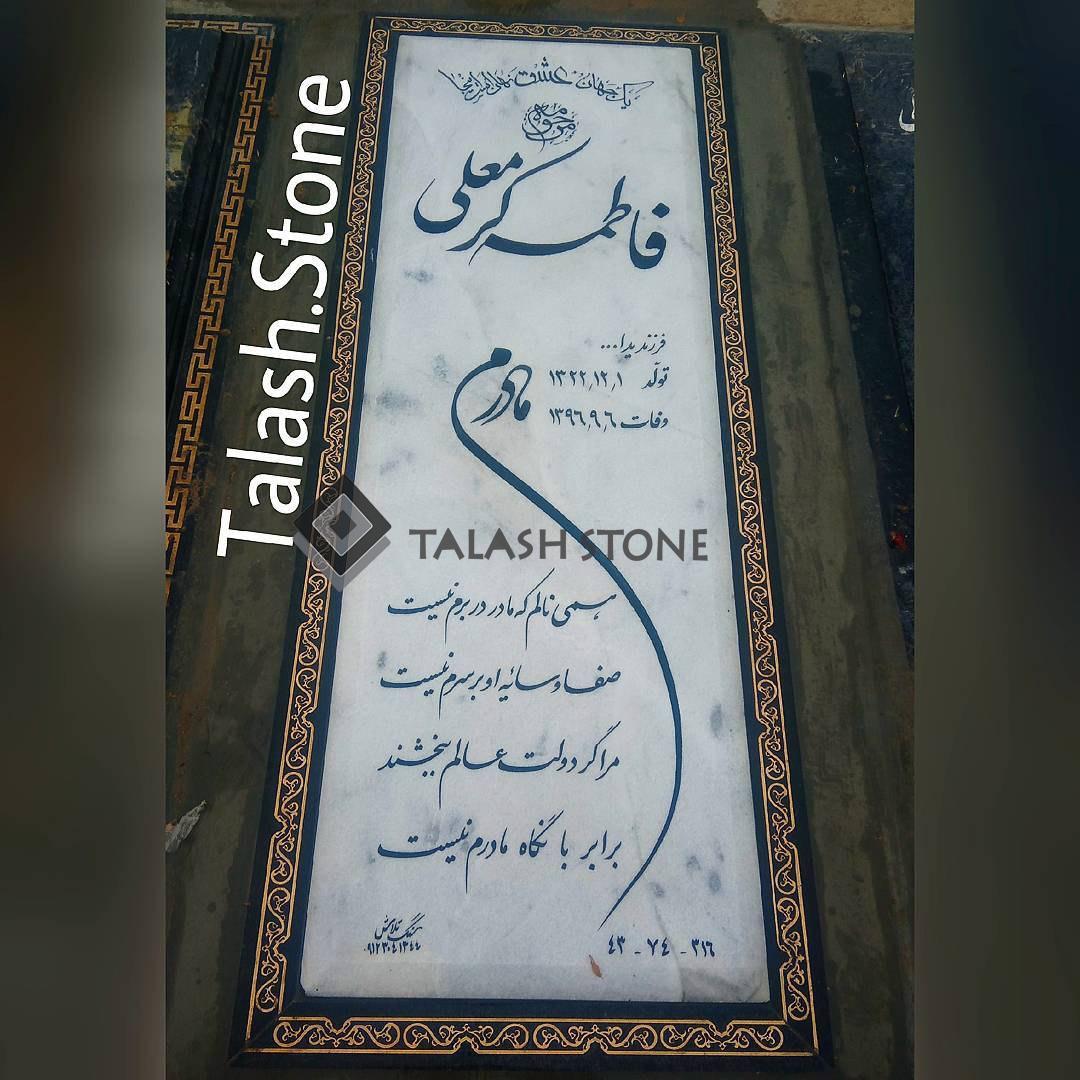 یک جهان عشق نهان است اینجا
مرحومه
فاطمه کرمعلی
فرزند یدا...
تولد ۱۳۲۲٫۱۲٫۱
وفات ۱۳۹۶٫۹٫۶
مادرم
همی نالم که مادر در برم نیست
صفا و سایه او بر سرم نیست
مرا گر دولت عالم ببخشند
برابر با نگاه مادرم نیست
سنگ تلاش
۴۳ - ۷۴ - ۳۱۶
Talash.Stone
TALASH STONE